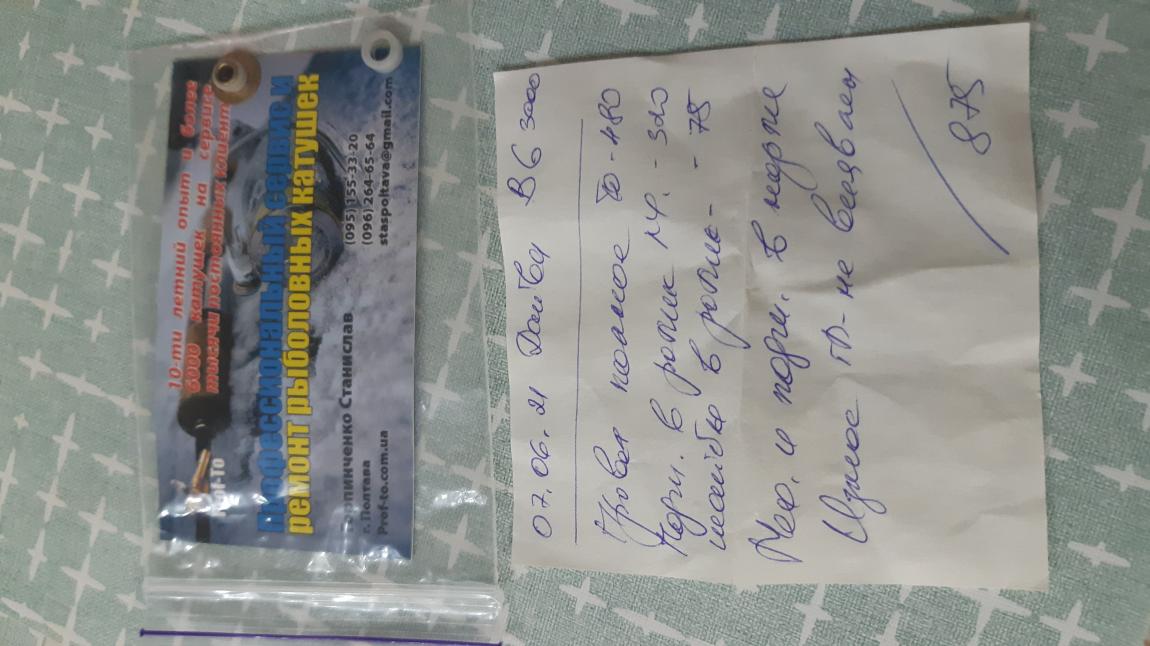 10-ти летний опыт и более
6000 катушек на сервисе
тысячи постоянных клиент
Prof-To
Профессиональный сервис и
ремонт рыболовных катушек
рпинченко Станислав
г. Полтава
Prof-to.com.ua
(095) 155-33-20
(096) 264-65-64
staspoltava@gmail.com
07.06.21 Дайва BG 3000
полное ТО - 480
Подш. в ролик - 320
шайбы в ролик - 75
и подш. в норме
ТО - не
875